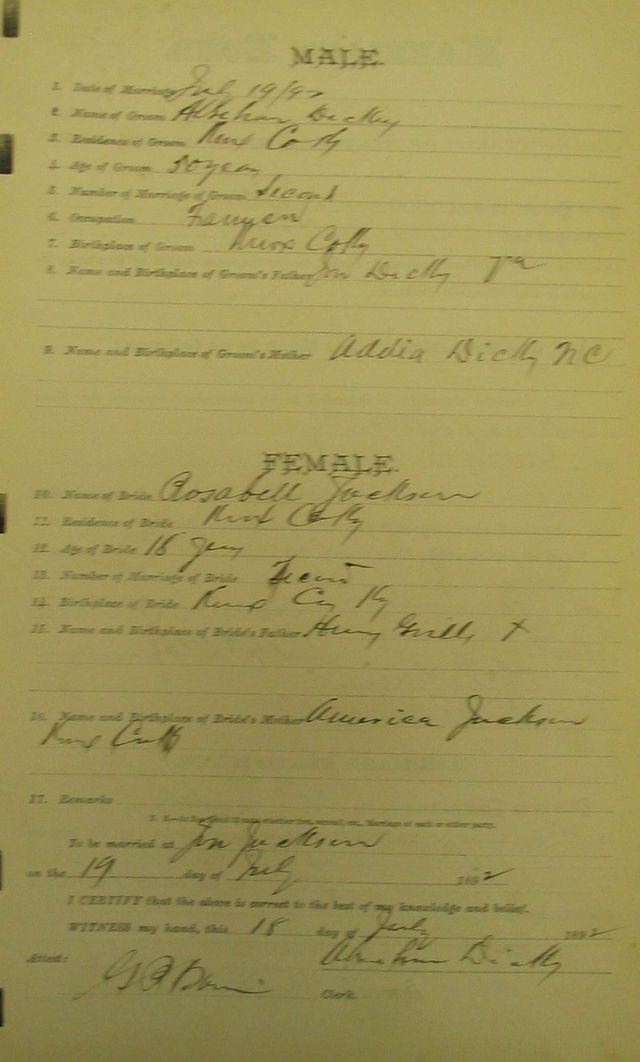 MALE.
1. Date of Marriage July 19/92
2. Name of Groom Dickey
3. Residence of Groom Knox Co Ky
4. Age of Groom 50 years
5. Number of Marriage of Groom Second
6. Occupation
7. Birthplace of Groom Knox Co Ky
8. Name and Birthplace of Groom's Father Dicky
9. Name and Birthplace of Groom's Mother Addia Dicky NC
FEMALE.
10. Name of Bride Rosabell Jackson
11. Residence of Bride Knox Co Ky
12. Age of Bride 18
13. Number of Marriage of Bride
14. Birthplace of Bride Knox Co Ky
15. Name and Birthplace of Bride's Father
16. Name and Birthplace of Bride's Mother America Jackson
Knox Co Ky
17. Remarks
To be married at Jackson
on the 19 day of July 1892
I CERTIFY that the above is correct to the best of my knowledge and belief.
WITNESS my hand, this 18 day of July 1892
Dicky
Attest:
Clerk.